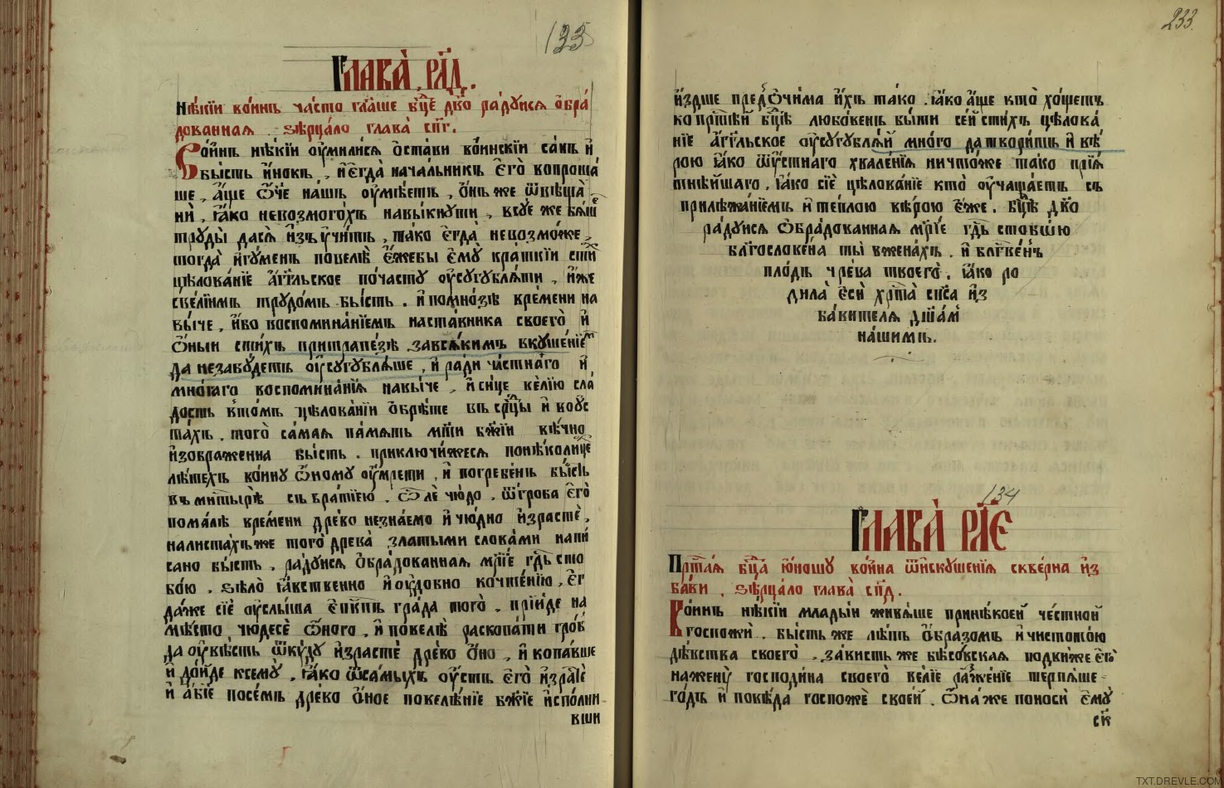 133
Глава̀ рл҃д.
Нѣ́кїи во́инъ ча́сто гл҃аше бц҃е дв҃о ра́дуися обра
дованная. ѕѣрца́ло глава̀ сп҃г.
Во́инъ нѣ́кїи оумили́ся оста́ви во́инскїи са́нъ и҆
бы́сть и҆́нокъ, и҆ є҆гда̀ нача́льникъ є҆го̀ вопроша
ше, а҆́ще ѿч҃е на́шъ оумѣ́етъ, ѻ҆́нъ же ѿвѣща̀
ни, ꙗ҆́ко невозмого́хъ навы́кнути, всю́ же
труды̀ дася̀ и҆зъучи́ти, та́ко є҆гда̀ невозмо́же
тогда̀ и҆гу́менъ повелѣ̀ є҆́жебы є҆му̀ кра́ткїи сти
цѣлова́нїе а҆́гг҃льское поча́сту оусугубля́ти, и҆́же
свели́имъ трудо́мъ бы́сть. и҆ помно́зѣ вре́мени на
вы́че, и҆́бо воспомина́нїемъ наста́вника своего̀ и҆
ѻ҆́ныи сти́хъ притрапе́зѣ зався́кимъ вкуше́нїе
да незабу́детъ оусугубля́ше, и҆ ра́ди ча́стнаго и҆
мно́гаго воспомина́нїя навы́че, и҆ си́це ве́лїю сла
дость втомъ цѣлова́нїи ѻ҆брѣ́те въ ср҃цы и҆ воус
та́хъ, того̀ са́мая па́мять мт҃и бж҃їи вѣ́чно
и҆зображенна бы́сть. приключи́жеся понѣколице
лѣ́техъ во́ину ѻ҆́ному оумре́ти, и҆ погребе́нъ бы́сть
въ мнт҃ырѣ̀ съ бра́тїею. ѽле чю́до, ѿгро́ба є҆го̀
пома́лѣ вре́мени дре́во незна́емо и҆ чю́дно и҆зрастѐ,
налиста́хъже того̀ дре́ва златы́ми слова́ми напи
сано бы́сть, ра́дуися ѻ҆бра́дованная мр҃їе гд҃ь сто
бо́ю. ѕѣло̀ ꙗ҆́вственно и҆ оудо́вно кочте́нїю, є҆г
да́же сїѐ оуслы́ша є҆пк҃пъ гра́да того̀, прїи́де на
мѣ́сто чюдесѐ ѻ҆́ного, и҆ повелѣ̀ раскопа́ти гро́б
да оувѣ́сть ѿку́ду и҆зрастѐ дре́во ѻ҆но, и҆ копа́вше
и҆ до́иде всему̀, ꙗ҆́ко ѿса́мыхъ оу́стъ є҆го̀ и҆зра́сте
и҆ а҆́бїе посе́мъ дре́во ѻ҆́ное повелѣ́нїе бж҃їе и҆спо́лни
вши
233
и҆зды́ше пред̾ѻчи́ма и҆́хъ та́ко. ꙗ҆́ко а҆́ще кто̀ хо́щетъ
ко пречт҃ѣи бц҃ѣ любо́венъ бы́ти се́й сти́хъ цѣлова
нїе а҆́гг҃льское оусугубля́й мно́го да твори́тъ и҆ вѣ́
рою ꙗ҆́ко ѿу́стнаго хвале́нїя ничто́же та́ко прїя
тнѣ́йшаго, ꙗ҆́ко сїѐ цѣлова́нїе кто̀ оучаща́етъ съ
прилѣжа́нїемъ и҆ те́плою вѣ́рою є҆́же. бц҃е дв҃о
ра́дуися ѻ҆бра́дованная мр҃їе гд҃ь стобо́ю
благослове́на ты̀ вжена́хъ, и҆ бл҃гве́нъ
пло́дъ чре́ва твоего̀, ꙗ҆́ко ро
дила̀ є҆сѝ хрт҃а̀ сп҃са и҆з
ба́вителя дш҃а́мъ
на́шимъ.
134
Глава̀ рл҃е
Прчт҃ая бц҃а ю҆́ношу во́ина ѿискуше́нїя скве́рна и҆з
ба́ви, ѕѣрца́ло глава̀ сп҃д.
Во́инъ нѣ́кїи млады́и живя́ше принѣ́коей че́стной
госпожѝ. бы́сть же лѣ́пъ ѻ҆́бразомъ и҆ чистото́ю
дѣ́вства своего̀. за́висть же бѣсо́вская подви́же
наженꙋ̀ господи́на своего̀ ве́лїе раж̾же́нїе терпя́ше
го́дъ и҆ повѣ́да госпожѐ свое́й. ѻ҆на́же поноси̏ є҆мꙋ̀
св
TXT.DREVLE.COM